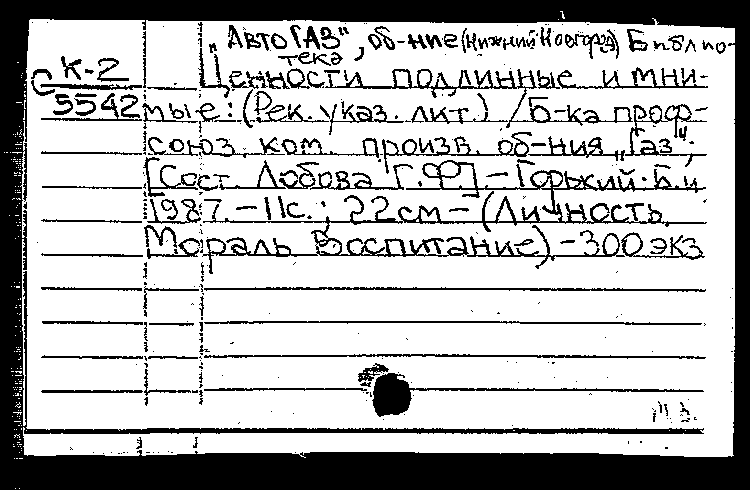 "АвтоГАЗ", об-ние (Нижний Новгород) Библио-
тека
К-2
С
5542
Ценности подлинные и мни-
мые: (Рек. указ. лит.) / Б-ка проф-
союз. ком. произв. об-ния "Газ";
[Сост. Лобова Г.Ф.] - Горький: Б.и
1987. - 11с.; 22см - (Личность.
Мораль Воспитание). - 300 экз